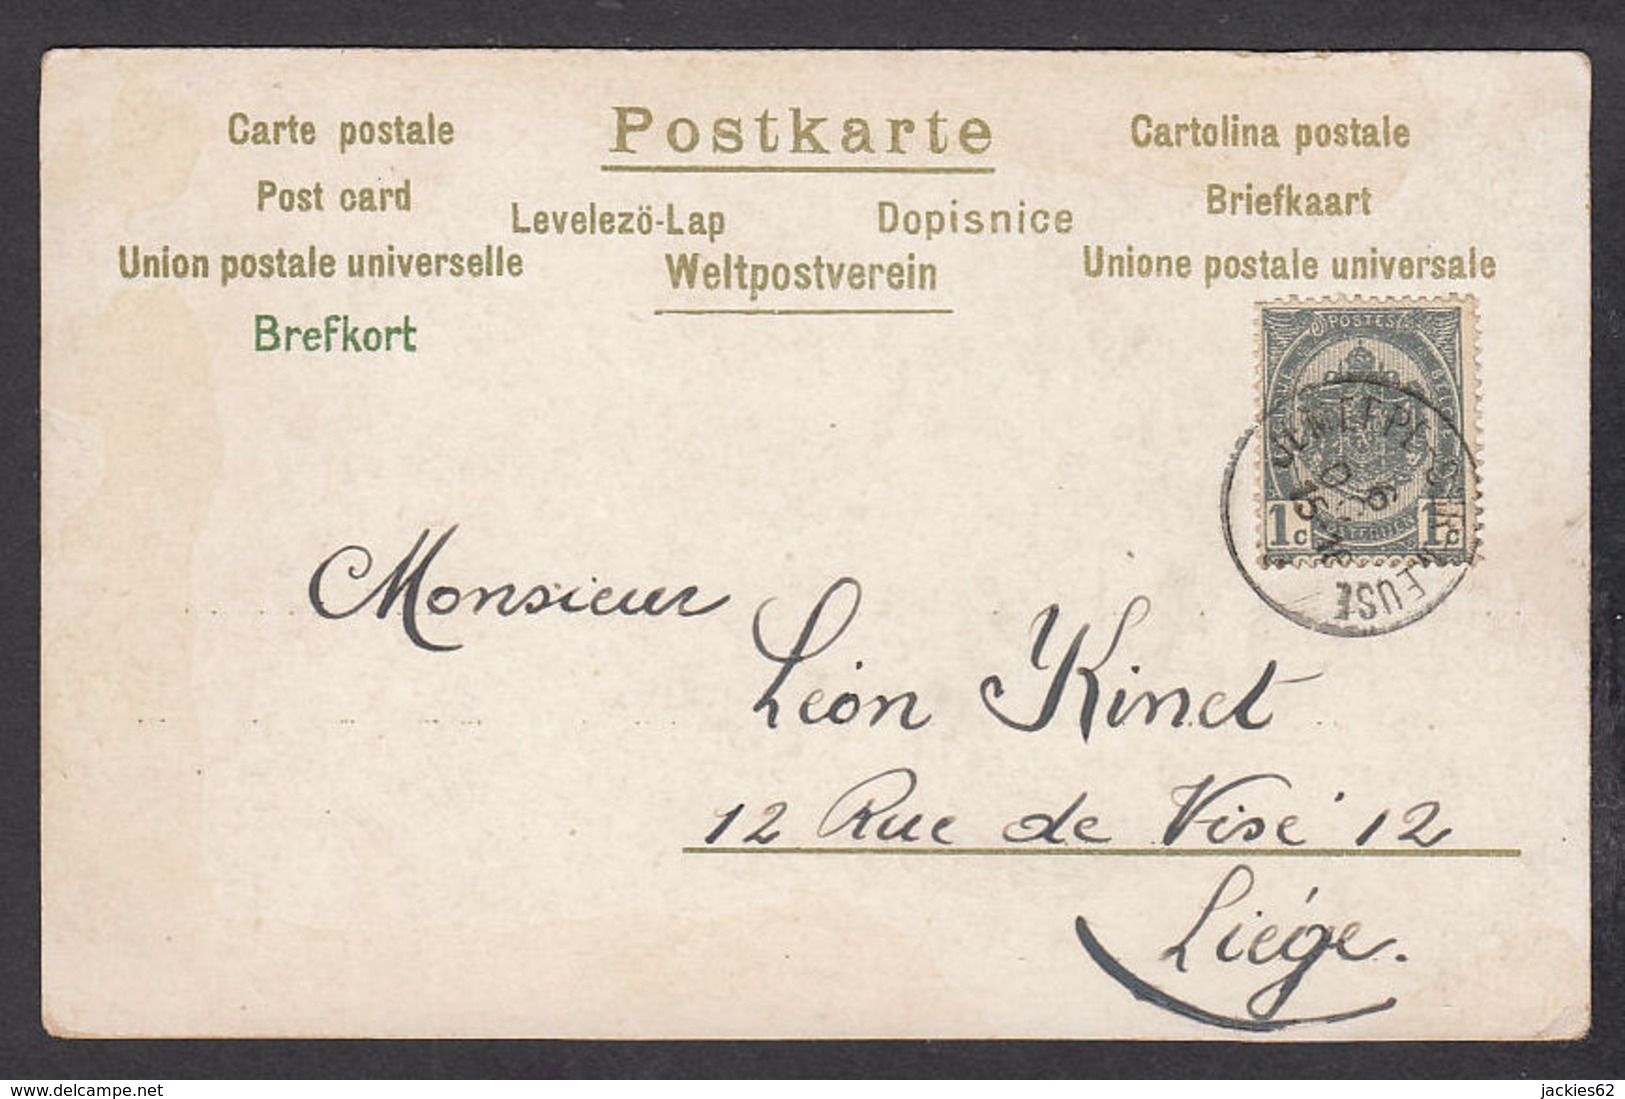 Carte postale
Postkarte
Cartolina postale
Post card
Levelezö-Lap
Dopisnice
Briefkaart
Union postale universelle
Weltpostverein
Unione postale universale
Brefkort
POSTES
1c 1c
JEMEPPE-SUR-MEUSE
Monsieur
Léon Kinet
12 Rue de Visé 12
Liége.
delcampe.net
jackies62